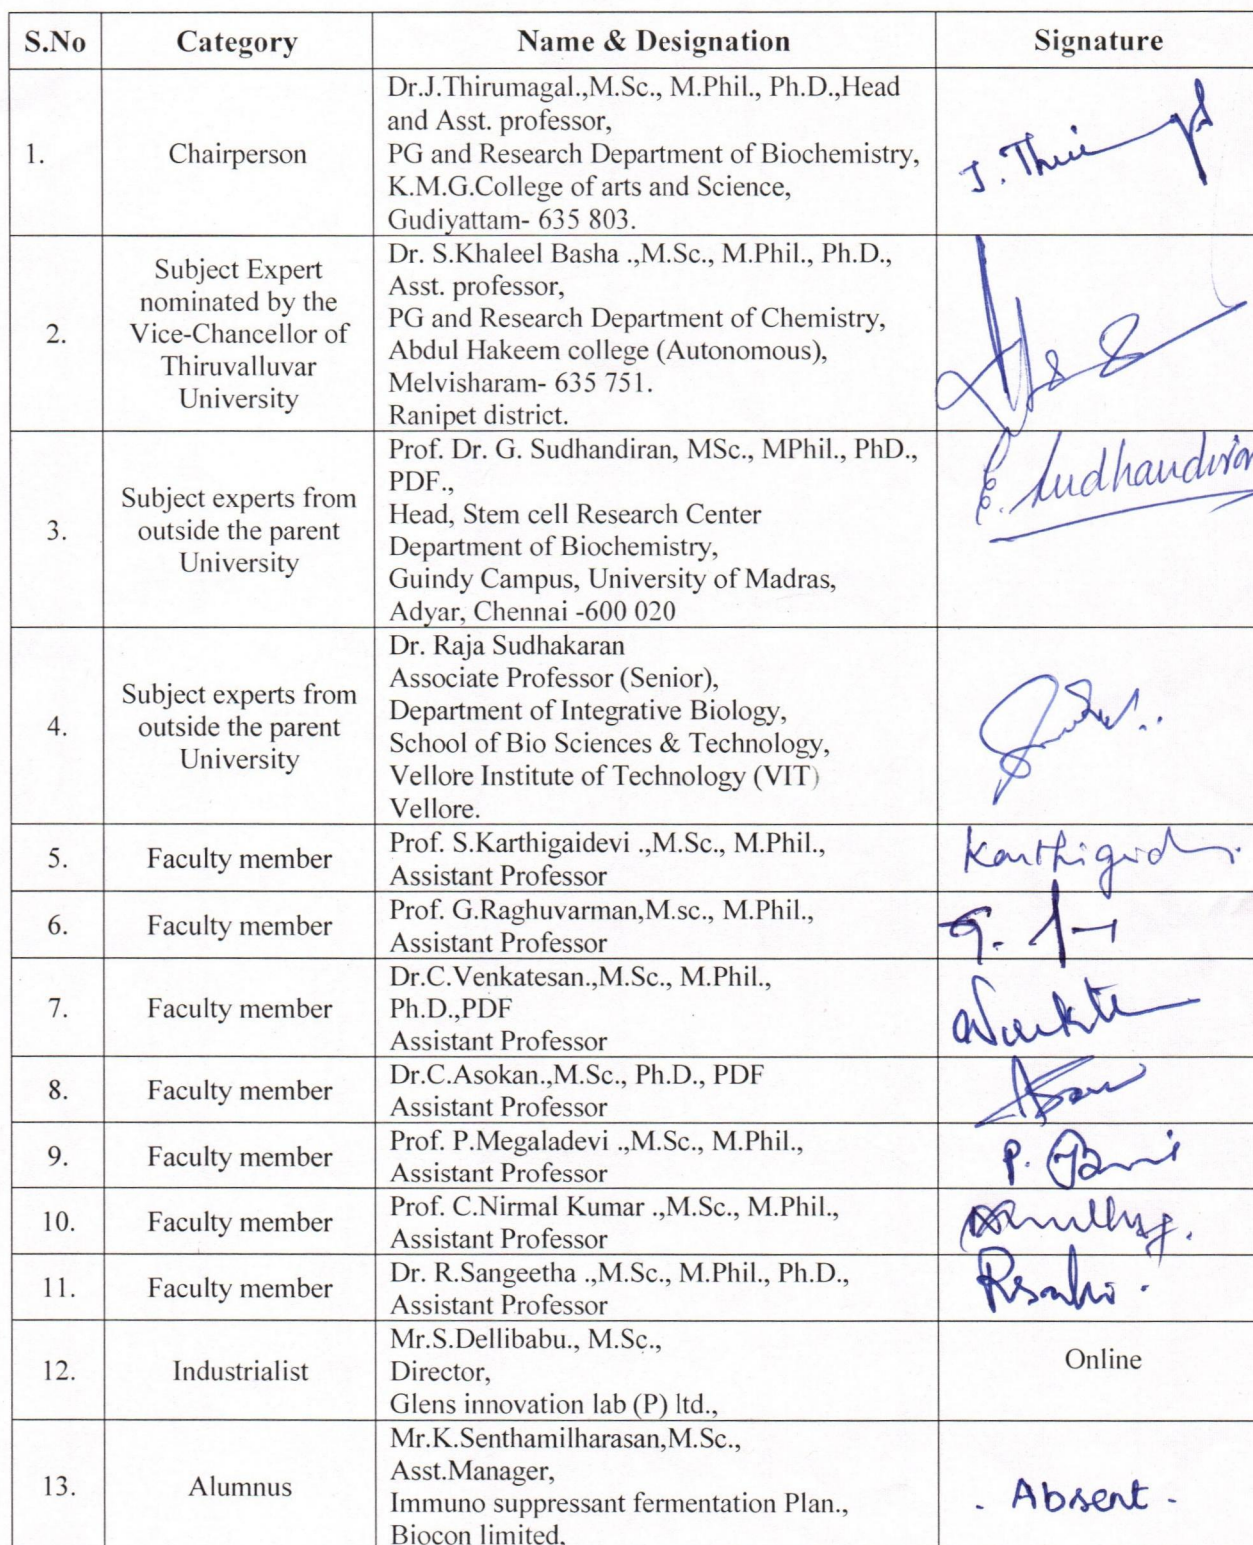 S.No Category Name & Designation Signature
1. Chairperson Dr.J.Thirumagal.,M.Sc., M.Phil., Ph.D.,Head
and Asst. professor,
PG and Research Department of Biochemistry,
K.M.G.College of arts and Science,
Gudiyattam- 635 803.
J. Thi
2. Subject Expert
nominated by the
Vice-Chancellor of
Thiruvalluvar
University
Dr. S.Khaleel Basha .,M.Sc., M.Phil., Ph.D.,
Asst. professor,
PG and Research Department of Chemistry,
Abdul Hakeem college (Autonomous),
Melvisharam- 635 751.
Ranipet district.
3. Subject experts from
outside the parent
University
Prof. Dr. G. Sudhandiran, MSc., MPhil., PhD.,
PDF.,
Head, Stem cell Research Center
Department of Biochemistry,
Guindy Campus, University of Madras,
Adyar, Chennai -600 020
G. Sudhandiran
4. Subject experts from
outside the parent
University
Dr. Raja Sudhakaran
Associate Professor (Senior),
Department of Integrative Biology,
School of Bio Sciences & Technology,
Vellore Institute of Technology (VIT)
Vellore.
5. Faculty member Prof. S.Karthigaidevi .,M.Sc., M.Phil.,
Assistant Professor
6. Faculty member Prof. G.Raghuvarman,M.sc., M.Phil.,
Assistant Professor
7. Faculty member Dr.C.Venkatesan.,M.Sc., M.Phil.,
Ph.D.,PDF
Assistant Professor
8. Faculty member Dr.C.Asokan.,M.Sc., Ph.D., PDF
Assistant Professor
9. Faculty member Prof. P.Megaladevi .,M.Sc., M.Phil.,
Assistant Professor
10. Faculty member Prof. C.Nirmal Kumar .,M.Sc., M.Phil.,
Assistant Professor
11. Faculty member Dr. R.Sangeetha .,M.Sc., M.Phil., Ph.D.,
Assistant Professor
12. Industrialist Mr.S.Dellibabu., M.Sc.,
Director,
Glens innovation lab (P) ltd.,
Online
13. Alumnus Mr.K.Senthamilharasan,M.Sc.,
Asst.Manager,
Immuno suppressant fermentation Plan.,
Biocon limited,
- Absent -